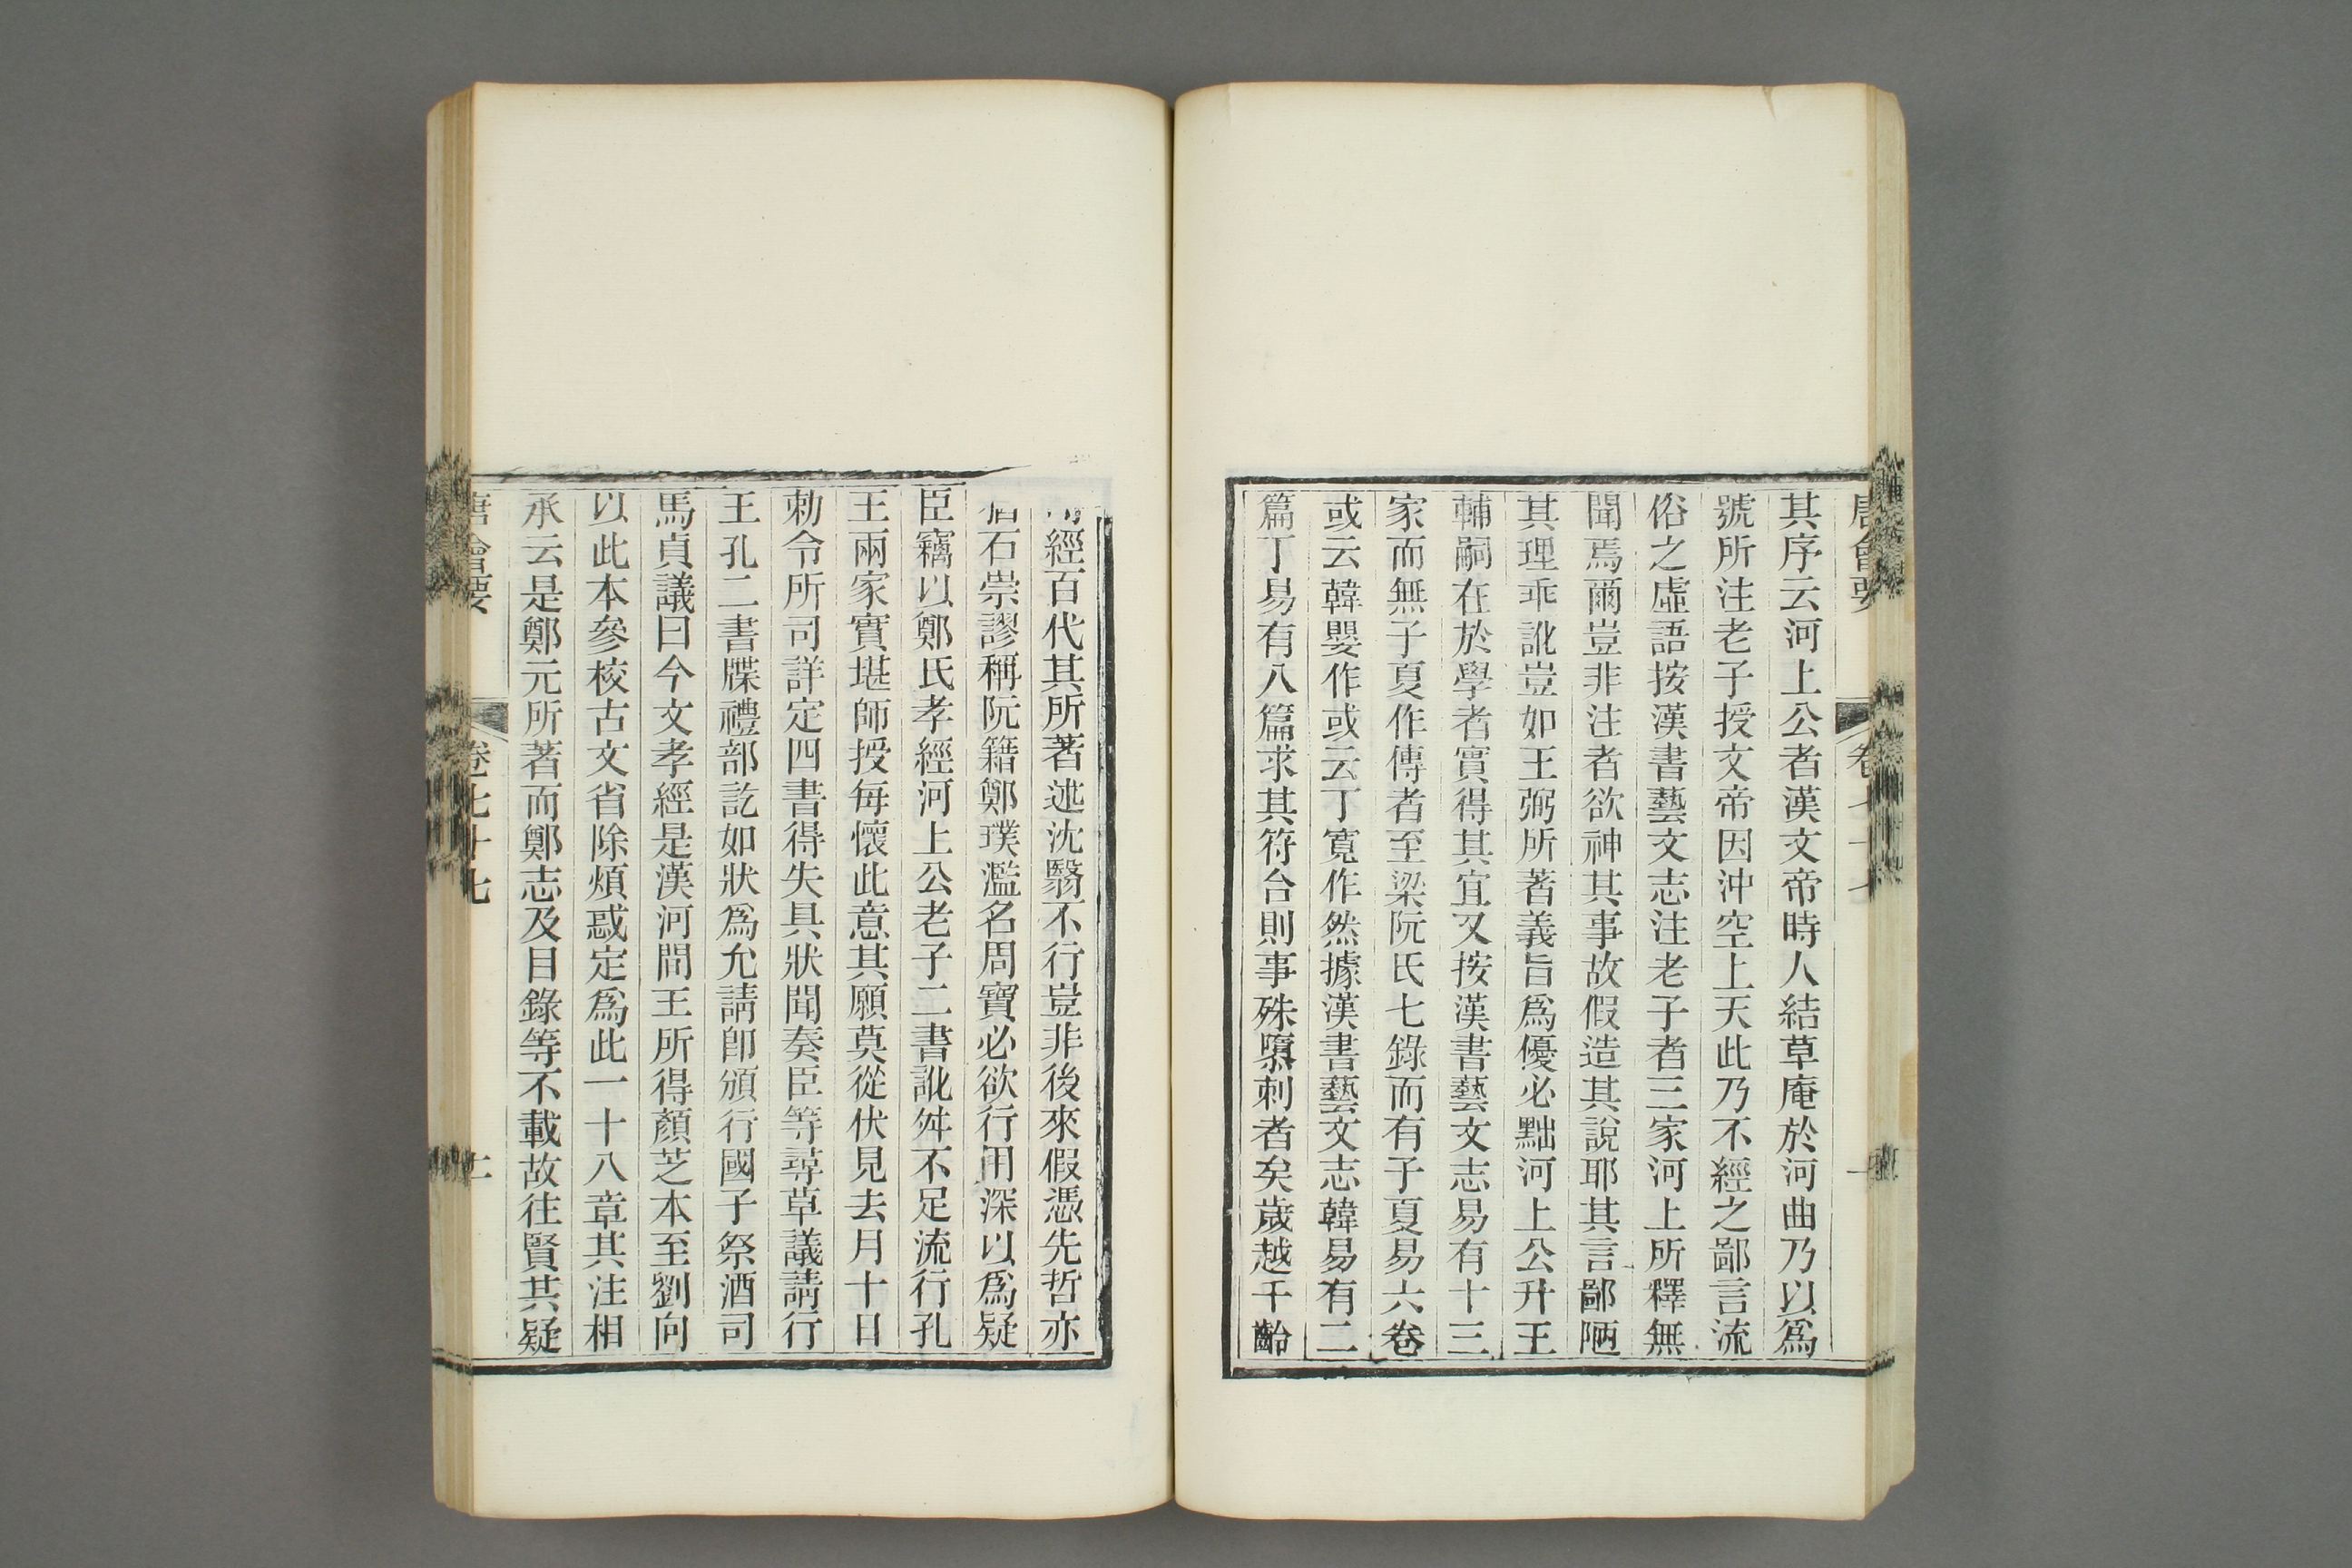 唐會要 卷七十七
其序云河上公者漢文帝時人結草庵於河曲乃以爲
號所注老子授文帝因沖空上天此乃不經之鄙言流
俗之虛語按漢書藝文志注老子者三家河上所釋無
聞焉爾豈非注者欲神其事故假造其說耶其言鄙陋
其理乖訛豈如王弼所著義旨爲優必黜河上公升王
輔嗣在於學者實得其宜又按漢書藝文志易有十三
家而無子夏作傳者至梁阮氏七錄而有子夏易六卷
或云韓嬰作或云丁寬作然據漢書藝文志韓易有二
篇丁易有八篇求其符合則事殊隳刺者矣歲越千齡
經百代其所著述沈翳不行豈非後來假憑先哲亦
猶石崇謬稱阮籍鄭璞濫名周寶必欲行用深以爲疑
臣竊以鄭氏孝經河上公老子二書訛舛不足流行孔
王兩家實堪師授每懷此意其願莫從伏見去月十日
勅令所司詳定四書得失具狀聞奏臣等尋草議請行
王孔二書牒禮部訖如狀爲允請卽頒行國子祭酒司
馬貞議曰今文孝經是漢河間王所得顏芝本至劉向
以此本參校古文省除煩惑定爲此一十八章其注相
承云是鄭元所著而鄭志及目錄等不載故往賢共疑
唐會要 卷七十七